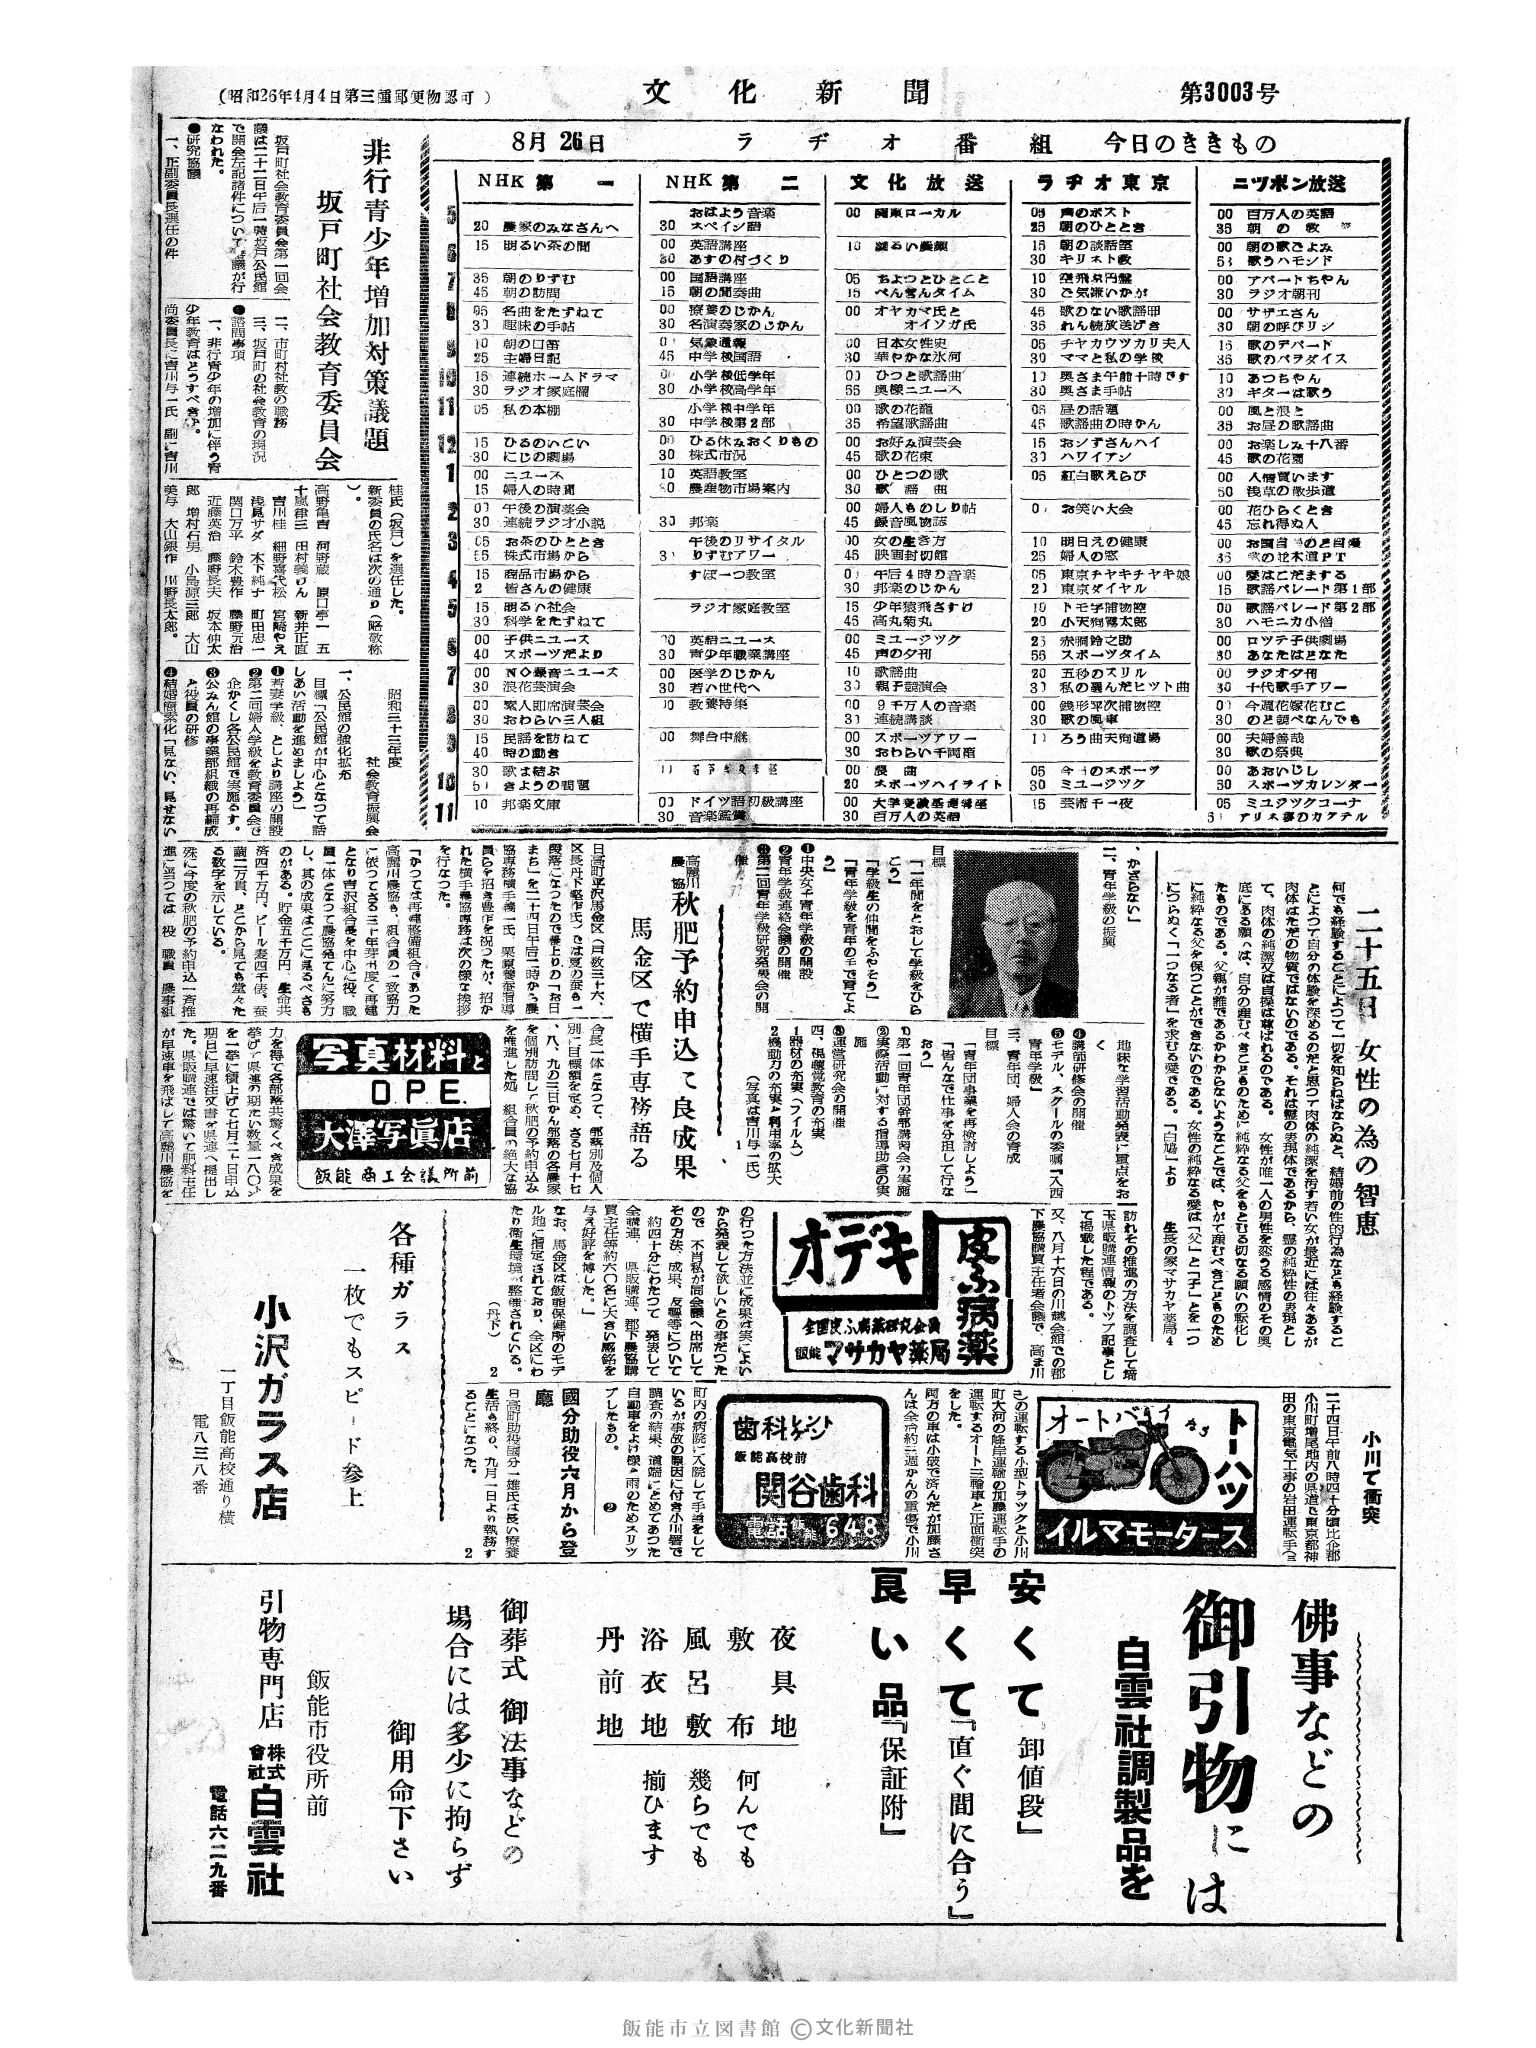 (昭和26年4月4日第三種郵便物認可)
文化新聞
第3003号
8月26日
ラヂオ番組
今日のききもの
NHK第一
20 農家のみなさんへ
15 明るい茶の間
35 朝のりずむ
45 朝の訪問
05 名曲をたずねて
30 趣味の手帖
10 朝の口笛
25 主婦日記
15 連続ホームドラマ
30 ラジオ家庭欄
05 私の本棚
15 ひるのいこい
30 にじの劇場
00 ニユース
15 婦人の時間
00 午後の演芸会
30 連続ラジオ小説
05 お茶のひととき
株式市場から
15 商品市場から
皆さんの健康
15 明るい社会
30 科学をたずねて
00 子供ニユース
40 スポーツだより
00 録音ニユース
30 浪花演芸会
00 素人即席演芸会
30 おわらい三人組
15 民謡を訪ねて
40 時の動き
30 歌は結ぶ
きようの問題
10 邦楽文庫
NHK第二
おはよう音楽
30 スペイン語
00 英語講座
30 あすの村づくり
00 国語講座
15 朝の間奏曲
00 療養のじかん
30 名演奏家のじかん
気象通報
45 中学校国語
小学校低学年
30 小学校高学年
小学校中学年
30 中学校第2部
00 ひる休みおくりもの
30 株式市況
10 英語教室
30 農産物市場案内
30 邦楽
午後のリサイタル
りずむアワー
すぽーつ教室
ラジオ家庭教室
英語ニユース
30 青少年職業講座
00 医学のじかん
30 若い世代へ
教養特集
00 舞台中継
00 ドイツ語初級講座
30 音楽鑑賞
文化放送
00 関東ローカル
10 明るい農業
05 ちよつとひとこと
15 ぺんぎんタイム
00 オヤカマ氏とオイソガ氏
00 日本女性史
30 華やかな氷河
00 ひつと歌謡曲
55 奥様ニユース
00 歌の花籠
35 希望歌謡曲
00 お好み演芸会
45 歌の花束
00 ひとつの歌
30 歌謡曲
00 婦人ものしり帖
45 録音風物誌
00 女の生き方
45 映画封切館
午后4時の音楽
30 邦楽のじかん
15 少年猿飛さすけ
45 高丸菊丸
00 ミユージツク
45 声の夕刊
10 歌謡曲
30 親子競演会
00 9千万人の音楽
連続講談
00 スポーツアワー
30 おわらい千両箱
00 浪曲
20 スポーツハイライト
00 大学受験基礎講座
30 百万人の英語
ラヂオ東京
05 声のポスト
25 朝のひととき
15 朝の談話室
30 キリスト教
10 空飛ぶ円盤
30 ご気嫌いかが
45 歌のない歌謡曲
35 れん続放送げき
05 チヤカウツカリ夫人
30 ママと私の学校
10 奥さま午前十時です
30 奥さま手帖
05 昼の話題
45 歌謡曲の時かん
15 おンずさんハイ
30 ハワイアン
05 紅白歌えらび
お笑い大会
10 明日えの健康
25 婦人の窓
05 東京チヤキチヤキ娘
東京ダイヤル
10 トモ子捕物控
20 小天狗霧太郎
25 赤胴鈴之助
55 スポーツタイム
20 五秒のスリル
私の選んだヒツト曲
00 銭形平次捕物控
30 歌の風車
ろう曲天狗道場
05 今日のスポーツ
30 ミユージツク
15 芸術千一夜
ニツポン放送
00 百万人の英語
35 朝の歌
00 朝の歌ごよみ
歌うハモンド
00 アパートちやん
30 ラジオ朝刊
00 サザエさん
30 朝の呼びリン
15 歌のデパート
35 歌のパラダイス
10 あつちやん
30 ギターは歌う
00 風と浪と
35 お昼の歌謡曲
00 お楽しみ十八番
45 歌の花園
00 人情買います
50 浅草の散歩道
00 花ひらくとき
45 忘れ得ぬ人
00 お面白のど自慢
歌の並木道PT
00 愛はこだまする
15 歌謡パレード第1部
00 歌謡パレード第2部
30 ハモニカ小僧
00 ロツテ子供劇場
30 あなたはどなた
00 ラジオ夕刊
30 十代歌手アワー
00 今週花嫁花むこ
30 のど調べなんでも
00 夫婦善哉
30 歌の祭典
00 あおいじし
50 スポーツカレンダー
05 ミユジツクコーナ
アリス夢のカクテル
非行青少年増加対策議題
坂戸町社会教育委員会
坂戸町社会教育委員会第一回会
議は二十二日午后一時坂戸公民館
で開会左記諸件について審議が行
なわれた。
●研究協議
一、正副委員長選任の件
二、市町村社教の職務
三、坂戸町の社会教育の現況
●諮問事項
一、非行青少年の増加に伴う青
少年教育はどうすべきか。
尚委員長に吉川与一氏 副に吉川
桂氏(坂戸)を選任した。
新委員の氏名は次の通り(略敬称
)。
高野亀吉 河野蔵 原口亭一 五
十嵐律三 田村義りん 新井正直
吉川桂 細野喜代松 宮崎やえ
浅見サダ 木下純子 町田忠一
関口万平 鈴木豊作 藤野元治
近藤英治 藤野長夫 坂本仲太
郎 増村石男 小島源三郎 大山
美与 大山銀作 川野長太郎。
昭和三十三年度
社会教育振興会
一、公民館の強化拡充
目標「公民館が中心となつて話
しあい活動を進めましよう」
❶若妻学級、としより講座の開設
❷第二回婦人学級を教育委員会で
企かくし各公民館で実施する。
❸公みん館の事業部組織の再編成
と役員の研修
❹結婚簡素化「見ない、見せない
、かざらない」
二、青年学級の振興
目標
「一年間をとおして学級をひら
こう」
「学級生の仲間をふやそう」
「青年学級を青年の手で育てよ
う」
❶中央女子青年学級の開設
❷青年学級連絡会議の開催
❸第二回青年学級研究発表会の開
催
地味な学習活動発表に重点をお
く
❹講師研修会の開催
❺モデル、スクールの委嘱「入西
青年学級」
三、青年団、婦人会の育成
目標
「青年団事業を再検討しよう」
「皆んなで仕事を分担して行な
おう」
❶第一回青年団幹部講習会の実施
❷実際活動に対する指導助言の実
施
❸運営研究会の開催
四、視聴覚教育の充実
1器材の充実(フイルム)
2機動力の充実と利用率の拡大
(写真は吉川与一氏)
1
高麗川農協
秋肥予約申込で良成果
馬金区で横手専務語る
日高町平沢馬金区(戸数三十六、
区長丹下軽作氏)では夏の蚕も一
段落になつたので養上りの「お日
まち」を二十四日午后二時から農
協専務横手義一氏、栗原養蚕指導
員らを招き豊作を祝つたが、招か
れた横手農協専務は次の様な挨拶
を行なつた。
「かつては再建整備組合であつた
高麗川農協も、組合員の一致協力
に依つてさる三十年芽出度く再建
となり吉沢組合長を中心に役、職
員一体となつて農協発てんに努力
し、其の成果はここに見るべきも
のがある。貯金五千万円、生命共
済四千万円、ビール麦四千俵、蚕
繭二万貫、どこから見ても堂々た
る数字を示している。
殊に今度の秋肥の予約申込一斉推
進に当つては 役 職員 農事組
合長一体となつて、部落別及個人
別に目標額を定め、さる七月十七
、八、九の三日かん部落の各農家
を個別訪問して秋肥の予約申込み
を推進した処 組合員の絶大な協
力を得て各部落共驚くべき成果を
挙げ県連の期たい数量一八〇%
を一挙に積上げて七月二十日申込
期日に早速注文書を県連へ提出し
た。県販購連では驚いて肥料主任
が早速車を飛ばして高麗川農協を
訪れその推進の方法を調査して埼
玉県販購連情報のトツプ記事とし
て掲載した程である。
又、八月十六日の川越会館での郡
下農協購買主任者会議で、高ま川
の行つた方法並に成果は実によい
から発表して欲しいとの事だつた
ので 不肖私が同会議へ出席して
その方法、成果、反響等について
約四十分にわたつて 発表して
全購連、県販購連、郡下農協購
買主任等約六〇名に大きい感銘を
与え好評を博した。」
なお、馬金区は飯能保健所のモデ
ル地に指定されており、全区にわ
たり衛生環境が整備されている。
(丹下) 2
二十五日 女性の為の智恵
何でも経験することによつて一切を知らねばならぬと、結婚前の性的行為なども経験するこ
とによつて自分の体験を深めるのだと思つて肉体の純潔を汚す若い女が最近には往々あるが
肉体はただの物質ではないのである。それは霊の表現体であるから、霊の純粋性の表現とし
て、肉体の純潔又は貞操は尊ばれるのである。 女性が唯一人の男性を恋うる感情のその奥
底にある願いは、自分の産むべきこどものために純粋なる父をもとむる切なる願いの転化し
たものである。父親が誰であるかわからないようなことでは、やがて産むべきこどものため
に純粋なる父を保つことができないのである。女性の純粋なる愛は「父」と「子」とを一つ
につらぬく「一つなる者」を求むる愛である。「白鳩」より 生長の家マサカヤ薬局4
写真材料と
D.P.E.
大澤写眞店
飯能商工会議所前
オデキ
皮ふ病薬
全国皮ふ病薬研究会員
飯能マサカヤ薬局
各種ガラス
一枚でもスピード参上
小沢ガラス店
一丁目飯能高校通り横
電八三八番
小川で衝突
二十四日午前八時四十分頃比企郡
小川町増尾地内の県道で東京都神
田の東京電気工事の岩田運転手(
)の運転する小型トラツクと小川
町大河の隆岸運輸の加藤運転手の
運転するオート三輪車と正面衝突
をした。
両方の車は小破で済んだが加藤さ
んは全治約三週かんの重傷で小川
町内の病院に入院して手当をして
いるが事故の原因に付き小川署で
調査の結果、道端にとめてあつた
自動車をよけ様と雨のためスリツ
プしたもの。 ❷
國分助役六月から登廳
日高町助役國分一雄氏は長い療養
生活も終り、九月一日より執務す
ることになつた。 2
歯科レントゲン
飯能高校前
関谷歯科
電話飯能648
オートバイなら
トーハツ
イルマモータース
佛事などの
御引物には
白雲社調製品を
安くて「卸値段」
早くて「直ぐ間に合う」
良い品「保証附」
夜具地
敷布 何んでも
風呂敷 幾らでも
浴衣地 揃ひます
丹前地
御葬式 御法事などの
場合には多少に拘らず
御用命下さい
飯能市役所前
引物専門店 株式會社 白雲社
電話六二九番
飯能市立図書館 ©文化新聞社